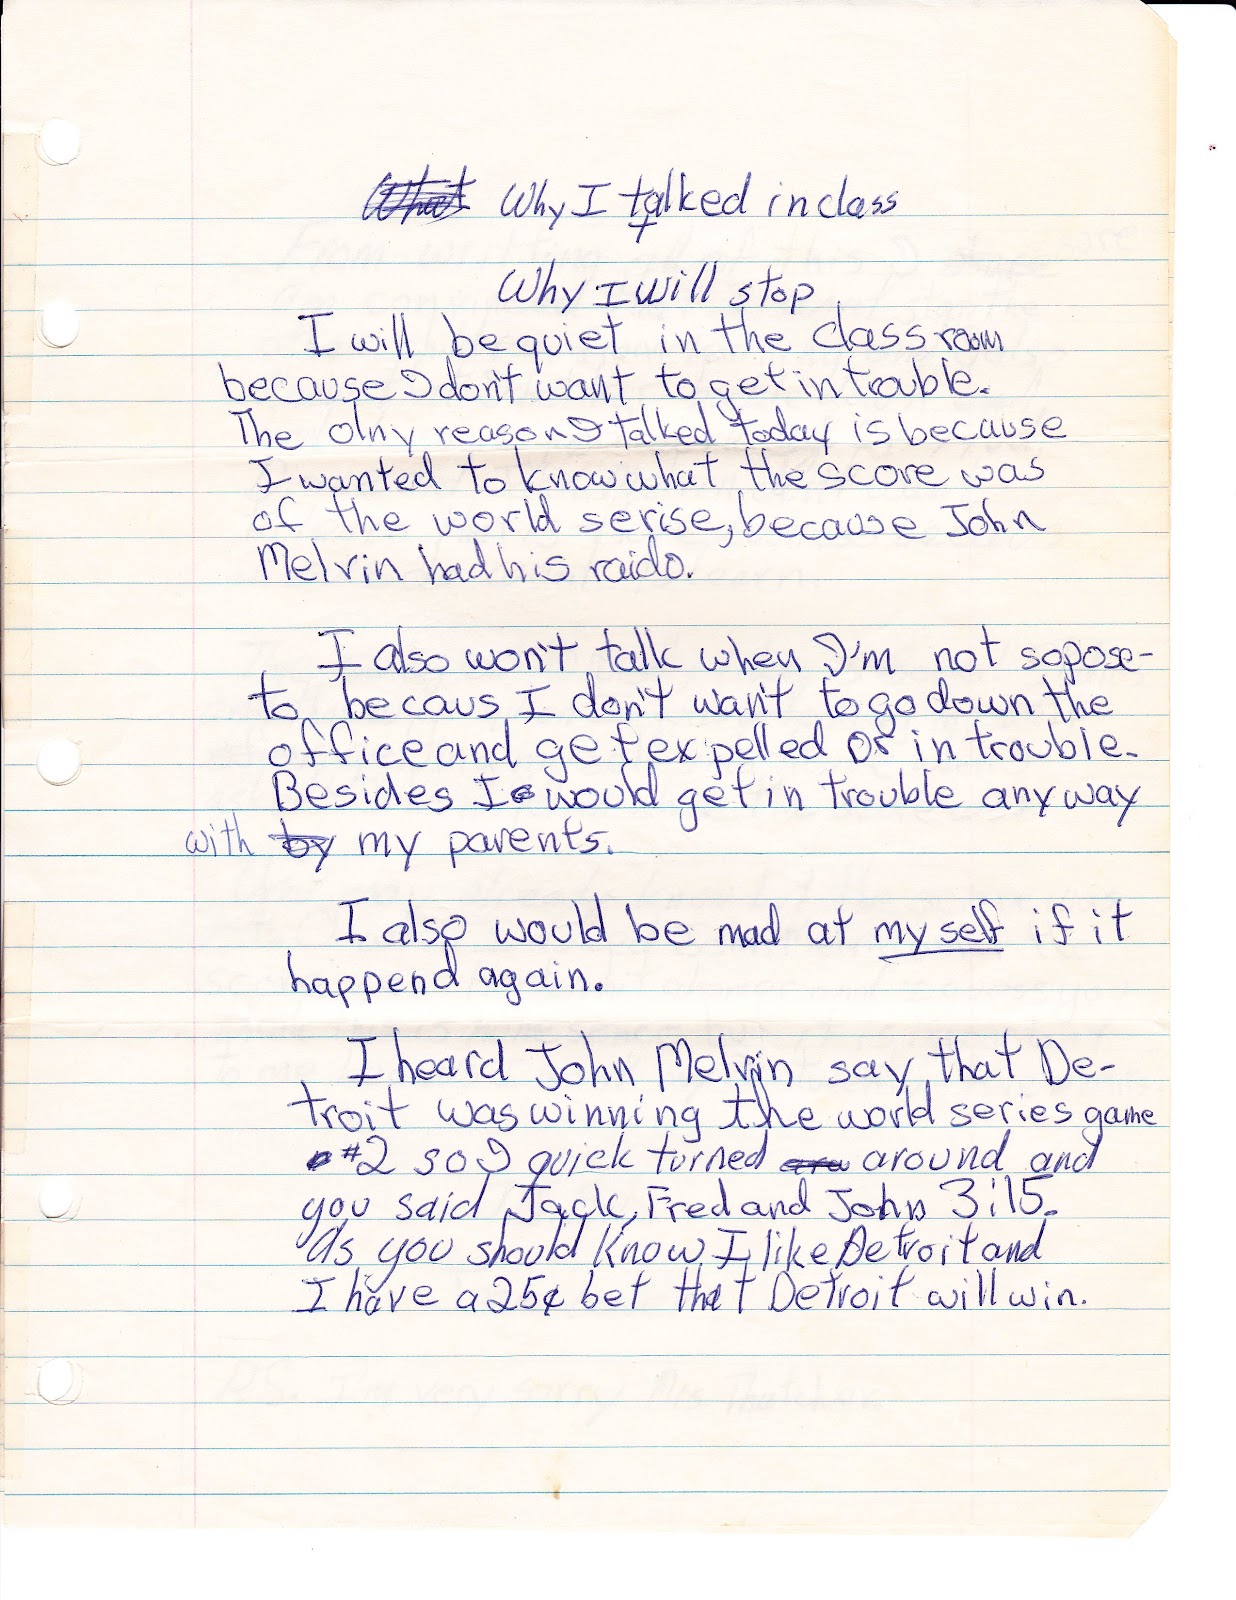 Why I talked in class
+
Why I will stop
I will be quiet in the class room
because I don't want to get in trouble.
The olny reason I talked today is because
I wanted to know what the score was
of the world serise, because John
Melvin had his raido.
I also won't talk when I'm not sopose-
to becaus I don't wan't to go down the
office and get expelled or in trouble.
Besides I would get in trouble any way
with by my parents.
I also would be mad at my self if it
happend again.
I heard John Melvin say that De-
troit was winning the world series game
#2 so I quick turned around and
you said Jack, Fred and John 3:15.
As you should know I like Detroit and
I have a 25¢ bet that Detroit will win.
P.S. I'm very sorry Mrs. Thatcher